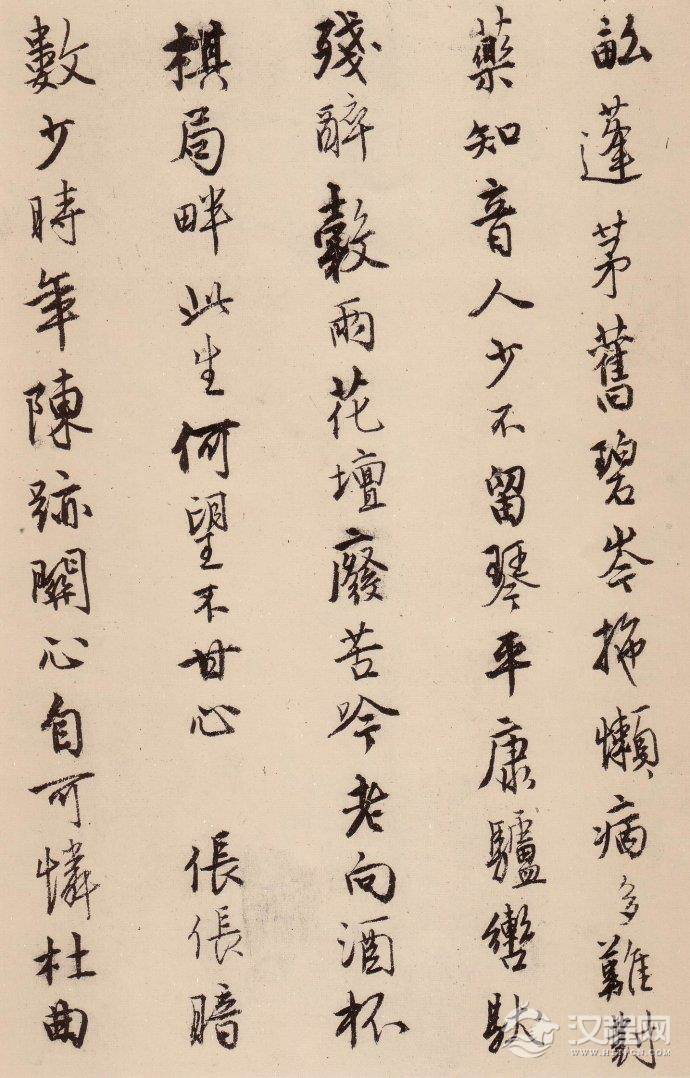 畝蓬茅舊碧岑拖懶病多難對
藥知音人少不留琴平康驢轡馱
殘醉穀雨花壇廢苦吟老向酒杯
棋局畔此生何望不甘心 倀倀暗
數少時年陳跡關心自可憐杜曲
汉程网